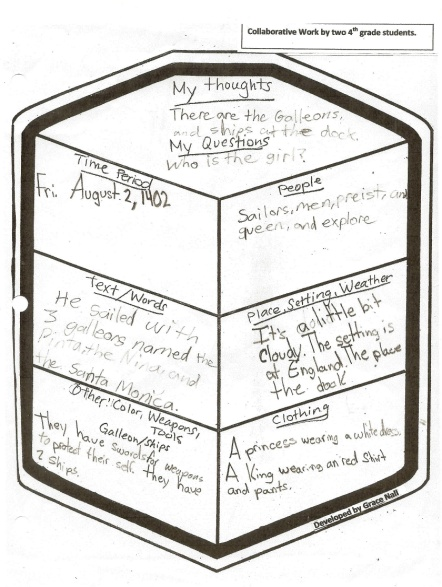 Collaborative Work by two 4th grade students.
My thoughts
There are the Galleons,
and ships at the dock.
My Questions
Who is the girl?
Time Period
Fri. August 2, 1402
People
Sailors, men, preist, and
queen, and explore
Text/Words
He sailed with
3 galleons named the
Pinta, the Nina, and
the Santa Monica.
Place, Setting, Weather
It's a little bit
Cloudy. The setting is
at England. The place
the dock
Other: Color, Weapons,
Tools
Galleon/ships
They have swords for weapons
to protect their self. They have
2 ships.
Clothing
A princess wearing a white dress.
A King wearing an red Shirt
and pants.
Developed by Grace Nall